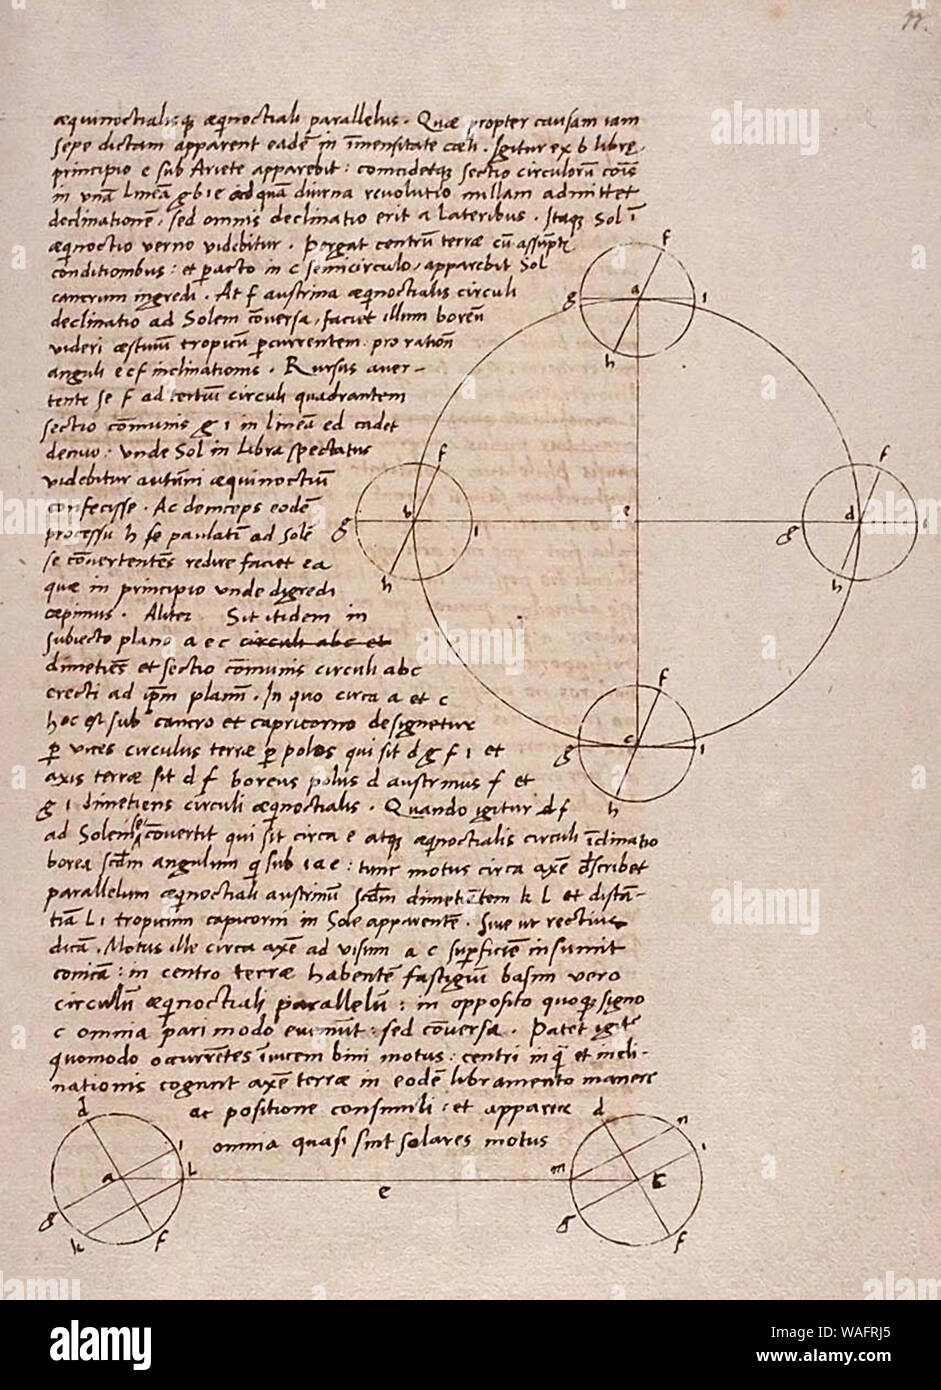 11.
æquinoctialisq; æqnoctiali parallelus. Quæ propter causam iam
sepe dictam apparent eadē in īmensitate cœli. Igitur ex b libræ
principio e sub Ariete apparebit: coincidetq; sectio circulorū cōīs
in unā lineā g b i e ad quam diurna revolutio nullam admittet
declinationē, sed omnis declinatio erit a lateribus. Itaq; Sol ī
æqnoctio verno videbitur. Pergat centrū terræ cū assūptis
conditionibus: et pacto in c semicirculo, apparebit Sol
cancrum ingredi. At f austrina æqnoctialis circuli
declinatio ad Solem cōversa, faciet illum boreū
videri æstivū tropicū pcurrentem pro ratiōn
anguli e c f inclinationis. Rursus aver-
tente se f ad tertiū circuli quadrantem
sectio cōmunis g i in lineā ed cadet
denuo: unde Sol in libra spectatus
videbitur autūni æquinoctiū
confecisse. Ac deinceps eodē
processu h se paulatī ad Solē
se cōvertentēs redire faciet ea
quæ in principio unde digredi
cœpimus. Aliter Sit itidem in
subiecto plano a e c circuli abc et
dimetiēs et sectio cōmunis circuli abc
erecti ad ipm planū. In quo circa a et c
hoc est sub cancro et capricorno designetur
p vices circulus terræ p polos qui sit d g f i et
axis terræ sit d f boreus polus d austrinus f et
g i dimetiens circuli æqnoctialis. Quando igitur d f
ad Solem se cōvertit qui sit circa e atq; æqnoctialis circuli īclinatio
borea scdm angulum q sub i a e: tunc motus circa axē dscribet
parallelum æqnoctiali austrinū scdm dimetientem k l et distā-
tiā l i tropicum capricorni in Sole apparentē. Sive ut rectius
dicā. Motus ille circa axē ad visum a c supficiē insumit
conicā: in centro terræ habentē fastigiū basim vero
circulū æqnoctiali parallelū: in opposito quoq; signo
c omnia pari modo eveniūt: sed cōversa. Patet igitr
quomodo occurrentes īvicem bini motus: centri inq et incli-
nationis cogunt axē terræ in eodē libramento manere
ac positione consimili: et apparere
omnia quasi sint solares motus
f
a
g
i
h
f
b
g
i
h
e
f
d
g
i
h
f
c
g
i
h
d
i
a
l
g
k
f
e
d
n
m
i
c
g
f
alamy
Image ID: WAFRJ5
www.alamy.com